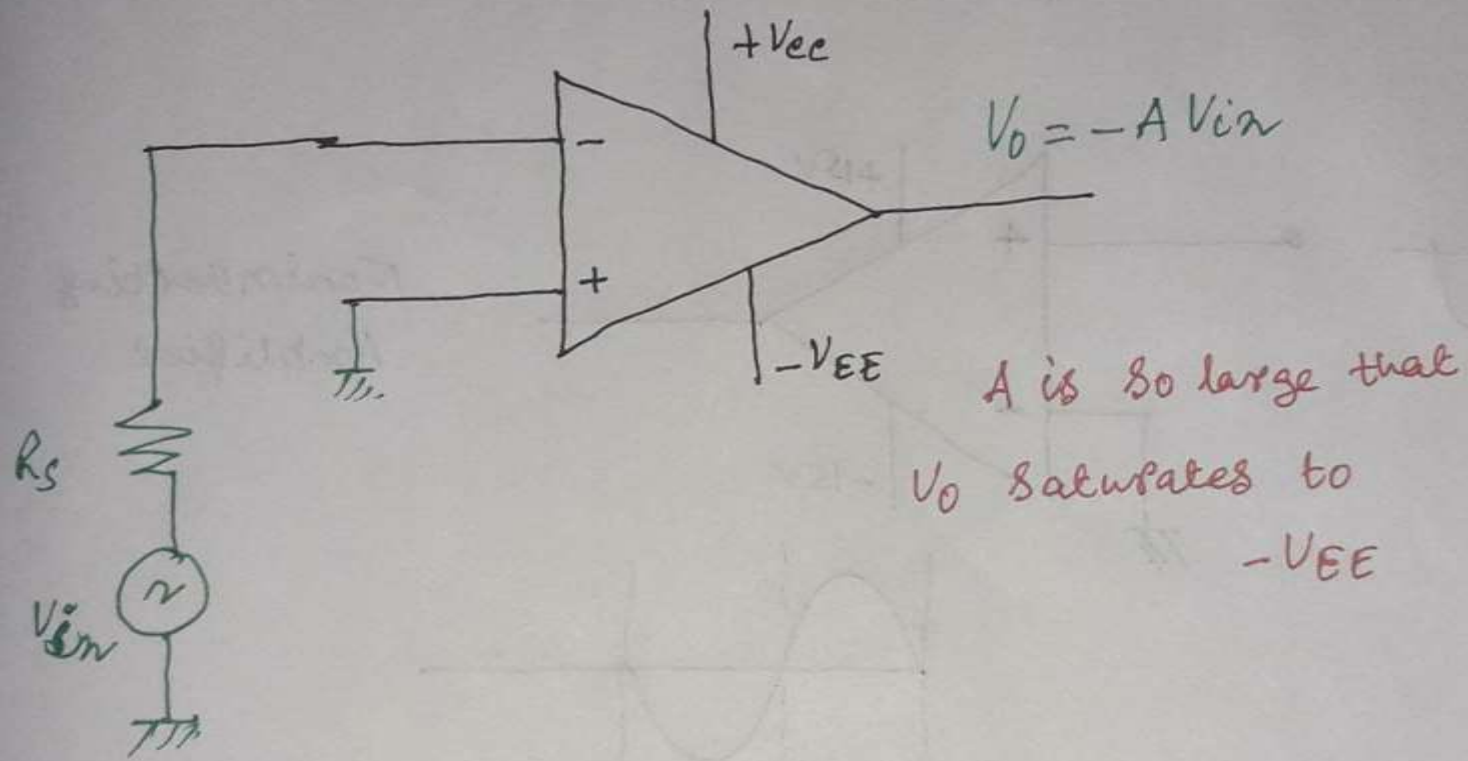 +Vcc
V₀ = -A Vin
-
+
-VEE
A is so large that
V₀ saturates to
-VEE
Rs
Vin